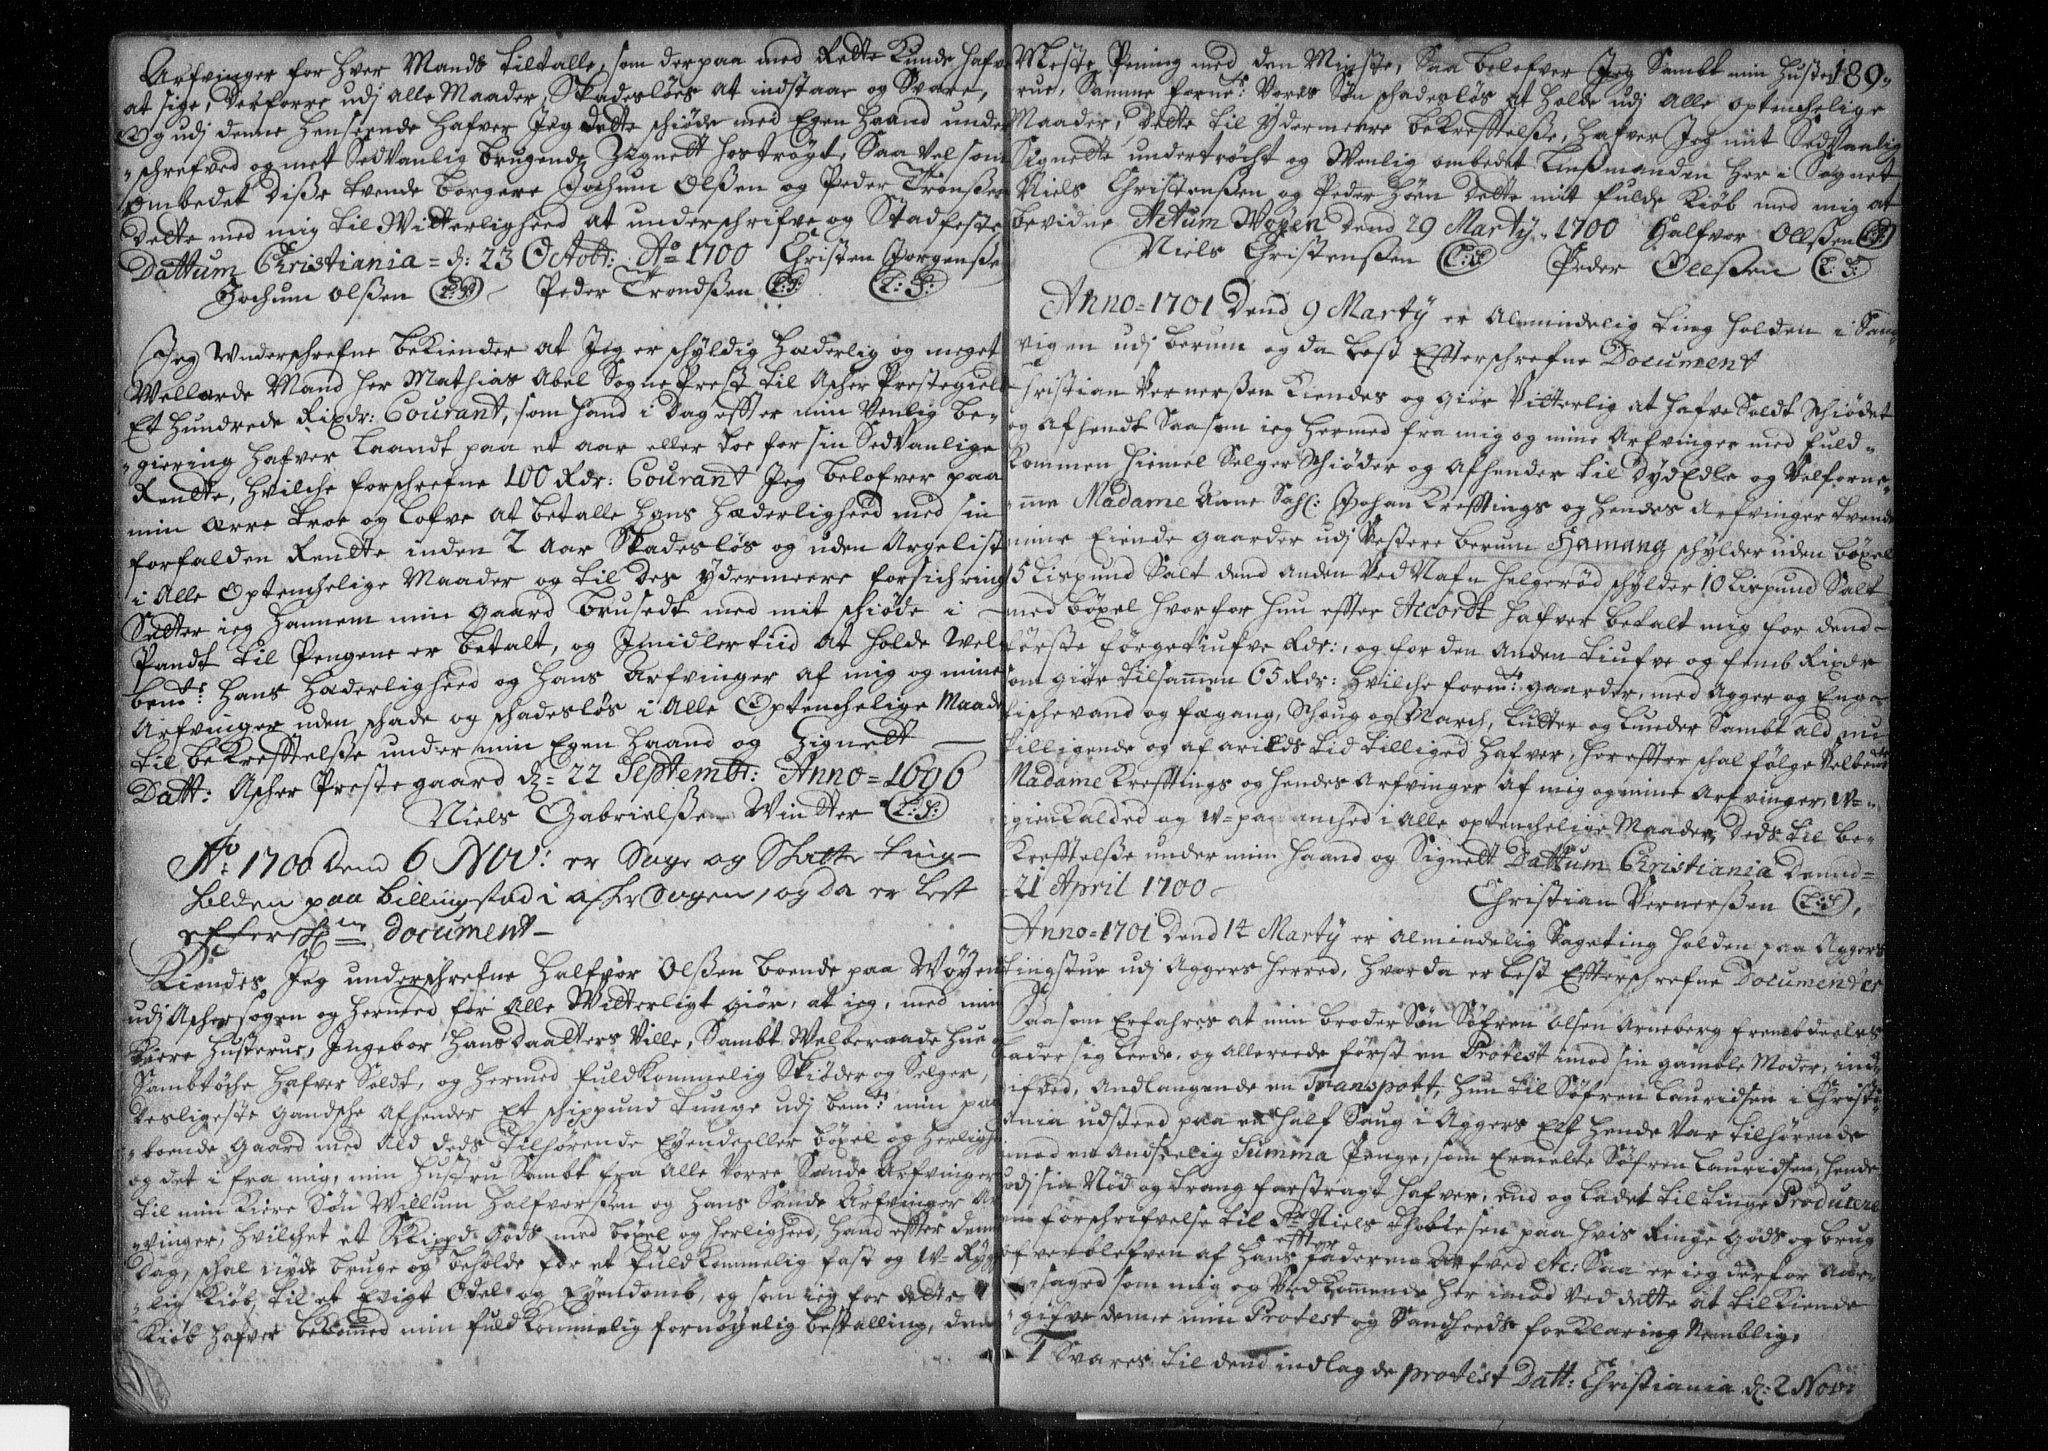 Arfvinger for hver Mands tiltalle, som derpaa med Rette kunde hafve
at sige, derforre udj alle Maader, Skadesløes at indstaae og Svare,
Og udj denne henseende hafver Jeg dette schiøde med Egen haand under
schrefved og mit Sedvanlig brugende Zignett hostrøgt, Saa vel som
Ombedet disse tvende borgere Jochum Olssen og Peder Tronssen
dette med mig til Vitterligheed at underschrifve og Stadfeste
Dattum Christiania = d: 23 Octobr: Ao 1700 Christen Jørgensse
Jochum olssen L:S: Peder Trondssen L:S: L:S:
Jeg Underschrefne bekiender at Jeg er schyldig hæderlig og meget
Wellærde Mand her Mathias Abel Sogne Prest til Ascher Prestegield
Et hundrede Rixdr: Courant, som hand i Dag effter min Venlig be-
giering hafver laandt paa et aar eller toe for sin Sedvanlige
Rentte, hvilche forschrefne 100 Rdr: Courant Jeg belofver paa
min ærre troe og lofve at betalle hans hæderligheed med sin
forfalden Rentte inden 2 Aar Skadesløs og uden Argelist
i Alle Optenchelige Maader og til des ydermeere forsichring
Setter ieg hannem min gaard brusedt med mit schiøde i
Pandt til Pengene er betalt, og Imidlertiid at holde vel
bemte: hans hæderligheed og hans Arfvinger af mig og mine
Arfvinger uden schade og schadesløs i Alle Optenchelige Maader
til bekrefftelsse under min Egen haand og Zignett
Datt: Ascher Prestegaard d: 22 Septembr: Anno = 1696
Niels Gabrielssen Windter L:S:
Ao 1700 Dend 6 Nov: er Sage og Skatte ting
holden paa billingstad i asker Sogen, og da er lest
effterschne document
Kiendes Jeg underschrefne Halfvor Olssen boende paa Wøyen
udj Aschersogen og hermed for Alle Witterligt giør, at ieg, med min
kiere husterue, Ingebor Hansdaatters Ville, Sambt Welberaade hue og
Sambtøche hafver Soldt, og hermed fuldkommelig Skiøder og Selger,
desligeste gandsche afhender Et schippund tunge udj bemte: min paa
boende gaard med Ald deds tilhørende Eyendeeller bøxel og herlighed
og det i fra mig, min hustru Sambt fra Alle Vorre Sande Arfvinger
til min kiere Søn Willum Halfvorssen og hans Sande Arfvinger Ar
vinger, hvilchet et Skippd: gods med bøxel og herligheed, hand effter denne
dag, schal nyde bruge og beholde for et fuldkommelig fast og W-Ryg
lig kiøb, til et Evigt Odel og Eyendomb, og som ieg for dette
kiøb hafver bekommed min fuldkommelig fornøyelig bestalling, dend
189
Meste Pening med den Minste, Saa belofver Jeg Sambt min huste
rue, Samme fornte: Vores Søn schadesløs at holde udj alle optenchelige
Maader, dette til ydermeere bekrefftelsse, hafver Jeg mit Sedvanlig
Signette undertrøcht og Venlig ombedet Lenssmanden her i Sognet
Niels Christenssen og Peder Høen dette mit fulde kiøb med mig at
bevidne Actum Wøyen dend 29 Marty 1700 Halfvor Ollssen L:S:
Niels Christenssen L:S: Peder Oellssen L:S:
Anno = 1701 Dend 9 Marty er Almindelig ting holden i Sand
vigen udj berum og da lest Effterschrefne Document
Christian Vernerssen kiendes og giør Vitterlig at hafve Soldt Schiødet
og Afhendt Saasom ieg hermed fra mig og mine Arfvinger med fuld-
kommen hiemel Selger Schiøder og Afhender til DydEdle og Velforne-
mme Madame Anne Sahl: Johan Krefftings og hendes Arfvinger tvende
mine Eiende gaarder udj Vestere berum Hamang schylder uden bøxel
5 Lispund Salt dend anden Ved Nafn helgerød schylder 10 Lispund Salt
med bøxel hvorfor hun effter Accordt hafver betalt mig for dend
første førgetiufve Rdr:, og for den anden tiufve og femb Rixdr
som giør tilsammen 65 Rdr: hvilche formte: gaarder, med Agger og Eng
fischevand og fægang, Schoug og March, Lutter og Lunder Sambt ald nu
tilligende og af arilds tid tilliged hafver, hereffter schal følge Velbemte
Madame Krefftings og hendes Arfvinger af mig og mine Arfvinger, W-
igienkalded og W-paaanched i Alle optenchelige Maader, deds til be-
krefftelsse under min haand og Signett Dattum Christiania Dennd
21 April 1700 Christian Vernerssen L:S:
Anno = 1701 Dend 14 Marty er Almindelig Sageting holden paa Aggers
tingstue udj Aggers herred, hvorda er lest Effterschrefne Documenter
Saasom Erfahres at min broder Søn Søfren Olsen Arneberg frembdeeles
lader sig leede, og allereede først en Protest imod sin gamble Moder, ind
gifved, andlangende en Transport, hun til Søfren Lauridsen i Christi
ania udsteed paa en half Saug i Aggers Elf hende Var tilhørende
med en Andseelig Summa Penge, som Ermelte Søfren Lauridsen, hende
udj sin Nød og trang forstragt hafver, end og ladet til tinge Producere
en forschrifvelse til Sr Niels paa hvis Ringe gods og brug
ofverblefven af hans effter faderne Arfved etc: Saa er ieg derfor Aar-
rsaged som mig og Vedkommende her imod Ved dette at tilkiende
gifve denne min Protest og Sandheeds forklaring Nemblig,
1 Svares til dend indlagde protest Datt: Christiania d: 2 Nov: